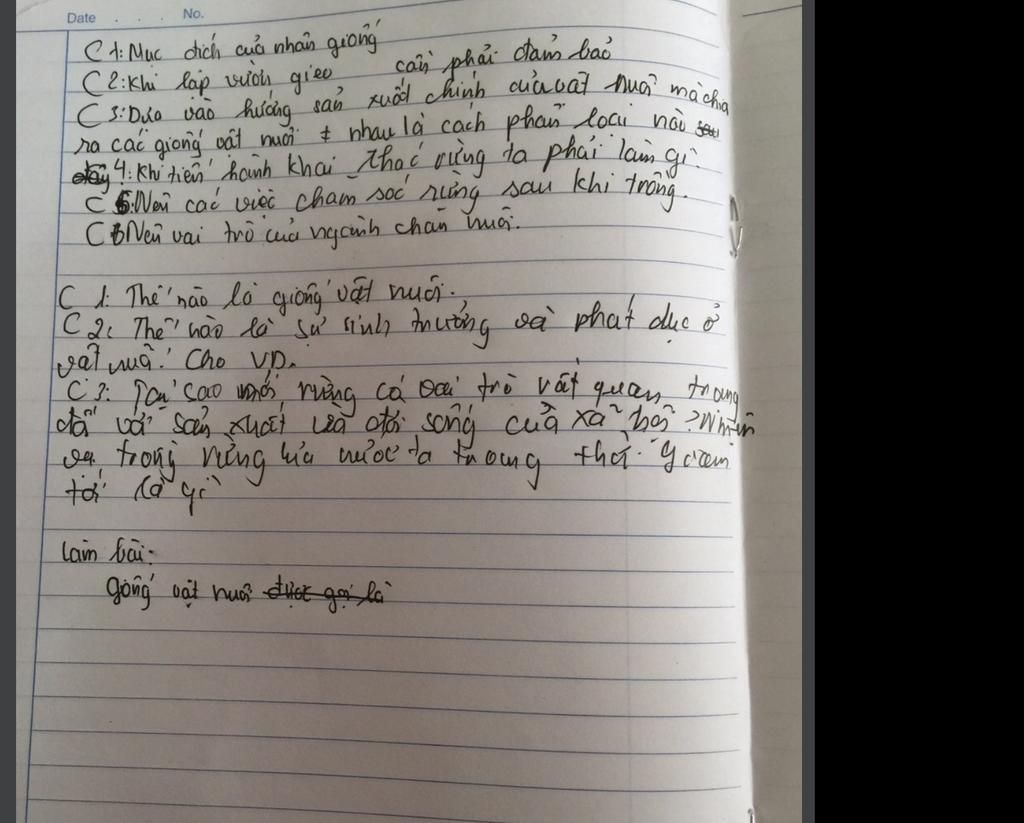 Date . . . No.
C 1: Mục đích của nhân giống
C 2: Khi lập vườn gieo cần phải đảm bảo
C 3: Dựa vào hướng sản xuất chính của vật nuôi mà chia
ra các giống vật nuôi ≠ nhau là cách phân loại nào
4: Khi tiến hành khai thác rừng ta phải làm gì.
C 5: Nêu các việc chăm sóc rừng sau khi trồng.
C 6 Nêu vai trò của ngành chăn nuôi.
C 1: Thế nào là giống vật nuôi.
C 2: Thế nào là sự sinh trưởng và phát dục ở
vật nuôi. Cho VD.
C 3: Tại sao nói rừng có vai trò rất quan trọng
đối với sản xuất và đời sống của xã hội? Nhiệm
vụ trồng rừng của nước ta trong thời gian
tới là gì
làm bài:
giống vật nuôi được gọi là